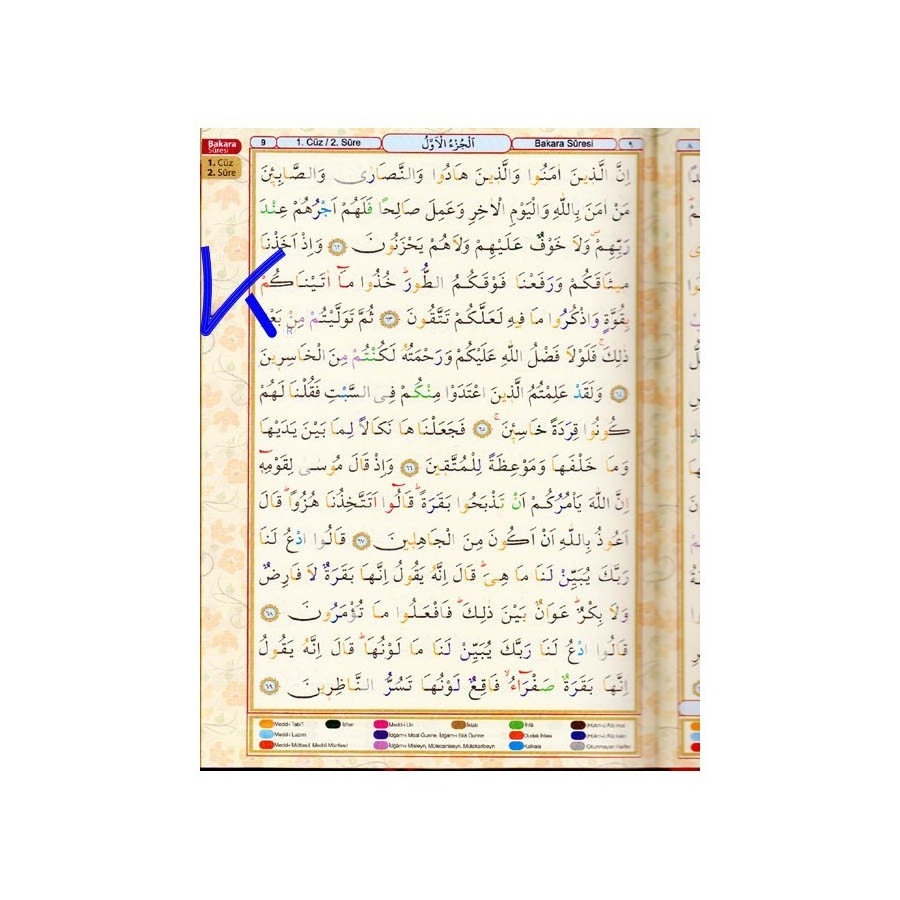 Bakara
Sûresi
1. Cüz
2. Sûre
9
1. Cüz / 2. Sûre
اَلْجُزْءُ الْاَوَّلُ
Bakara Sûresi
٩
اِنَّ الَّذ۪ينَ اٰمَنُوا وَالَّذ۪ينَ هَادُوا وَالنَّصَارٰى وَالصَّابِـ۪ٔينَ
مَنْ اٰمَنَ بِاللّٰهِ وَالْيَوْمِ الْاٰخِرِ وَعَمِلَ صَالِحًا فَلَهُمْ اَجْرُهُمْ عِنْدَ
رَبِّهِمْۖ وَلَا خَوْفٌ عَلَيْهِمْ وَلَاهُمْ يَحْزَنُونَ ﴿٦٢﴾ وَاِذْ اَخَذْنَا
م۪يثَاقَكُمْ وَرَفَعْنَا فَوْقَكُمُ الطُّورَۜ خُذُوا مَٓا اٰتَيْنَاكُمْ
بِقُوَّةٍ وَاذْكُرُوا مَا ف۪يهِ لَعَلَّكُمْ تَتَّقُونَ ﴿٦٣﴾ ثُمَّ تَوَلَّيْتُمْ مِنْ
ذٰلِكَۚ فَلَوْلَا فَضْلُ اللّٰهِ عَلَيْكُمْ وَرَحْمَتُهُ لَكُنْتُمْ مِنَ الْخَاسِر۪ينَ
﴿٦٤﴾ وَلَقَدْ عَلِمْتُمُ الَّذ۪ينَ اعْتَدَوْا مِنْكُمْ فِي السَّبْتِ فَقُلْنَا لَهُمْ
كُونُوا قِرَدَةً خَاسِـ۪ٔينَۚ ﴿٦٥﴾ فَجَعَلْنَاهَا نَكَالًا لِمَا بَيْنَ يَدَيْهَا
وَمَا خَلْفَهَا وَمَوْعِظَةً لِلْمُتَّق۪ينَ ﴿٦٦﴾ وَاِذْ قَالَ مُوسٰى لِقَوْمِه۪ٓ
اِنَّ اللّٰهَ يَأْمُرُكُمْ اَنْ تَذْبَحُوا بَقَرَةًۜ قَالُٓوا اَتَتَّخِذُنَا هُزُوًاۜ قَالَ
اَعُوذُ بِاللّٰهِ اَنْ اَكُونَ مِنَ الْجَاهِل۪ينَ ﴿٦٧﴾ قَالُوا ادْعُ لَنَا
رَبَّكَ يُبَيِّنْ لَنَا مَا هِيَۜ قَالَ اِنَّهُ يَقُولُ اِنَّهَا بَقَرَةٌ لَا فَارِضٌ
وَلَا بِكْرٌۜ عَوَانٌ بَيْنَ ذٰلِكَۜ فَافْعَلُوا مَا تُؤْمَرُونَ ﴿٦٨﴾
قَالُوا ادْعُ لَنَا رَبَّكَ يُبَيِّنْ لَنَا مَا لَوْنُهَاۜ قَالَ اِنَّهُ يَقُولُ
اِنَّهَا بَقَرَةٌ صَفْرَٓاءُۙ فَاقِعٌ لَوْنُهَا تَسُرُّ النَّاظِر۪ينَ ﴿٦٩﴾
Medd-i Tabiî İzhar Medd-i Lin İklab İhfâ
Medd-i Lazım Kalkale